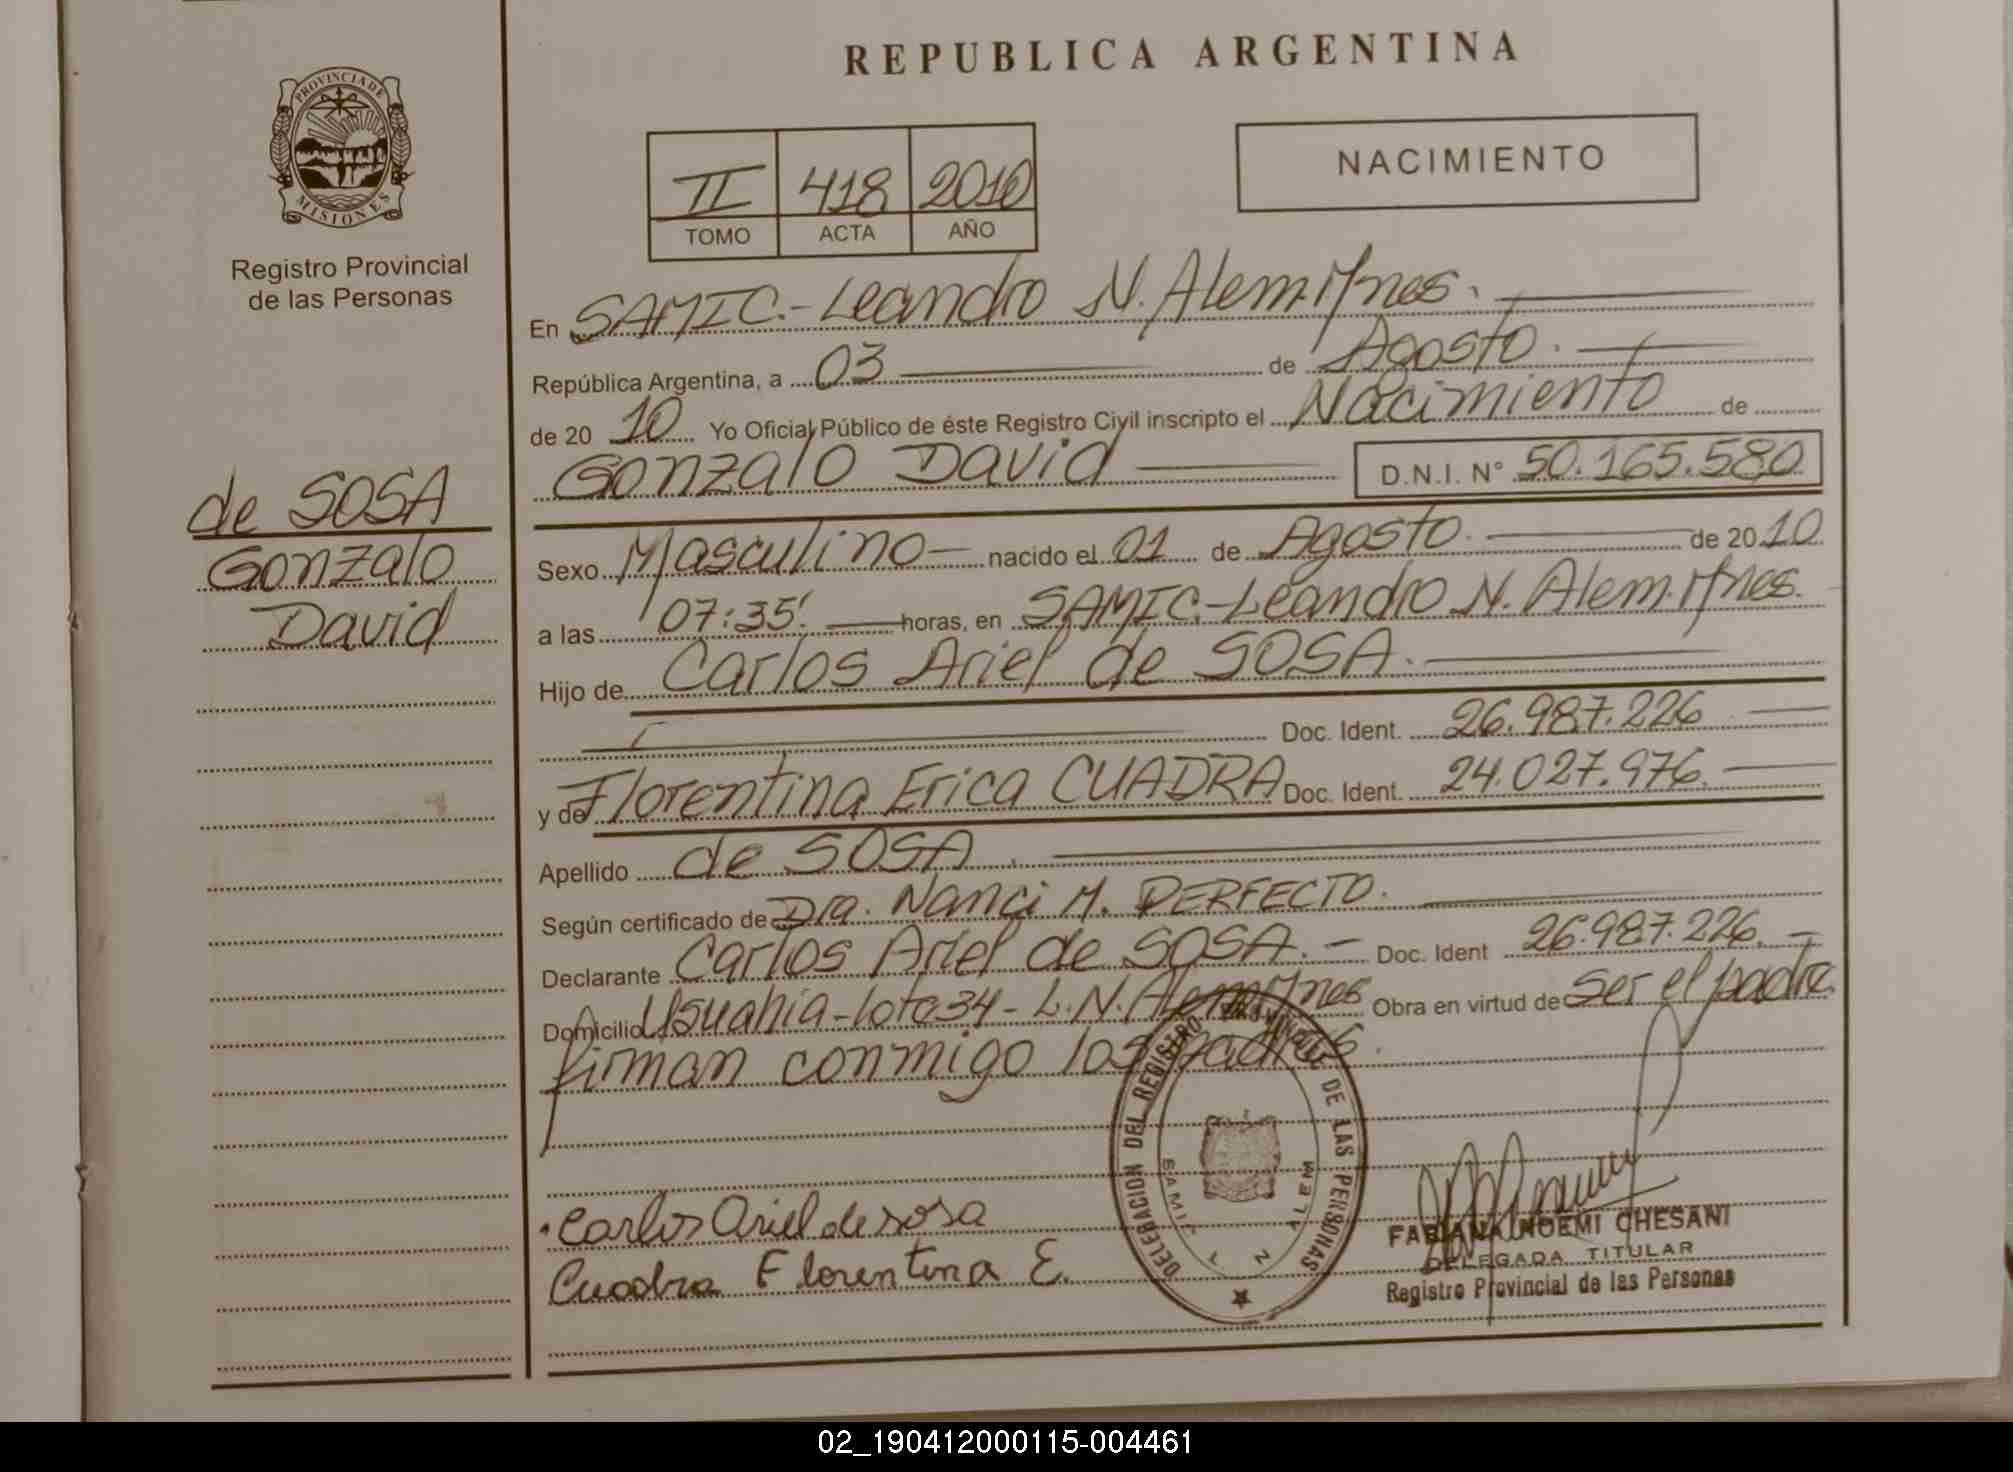 REPUBLICA ARGENTINA
PROVINCIA DE
MISIONES
Registro Provincial
de las Personas
II 418 2010
TOMO ACTA AÑO
NACIMIENTO
de SOSA
Gonzalo
David
En SAMIC.-Leandro N. Alem. Mnes.
República Argentina, a 03 de Agosto.
de 20 10 Yo Oficial Público de éste Registro Civil inscripto el Nacimiento de
Gonzalo David D.N.I. N° 50.165.580
Sexo Masculino nacido el 01 de Agosto. de 20 10
a las 07:35' horas, en SAMIC.-Leandro N. Alem. Mnes.
Hijo de Carlos Ariel de SOSA.
Doc. Ident. 26.987.226
y de Florentina Erica CUADRA Doc. Ident. 24.027.976.
Apellido de SOSA.
Según certificado de Dra. Nanci M. PERFECTO.
Declarante Carlos Ariel de SOSA. Doc. Ident 26.987.226.
Domicilio Usuahia-lote 34-L.N. Alem. Mnes Obra en virtud de Ser el padre.
firman conmigo los padres.
DELEGACION DEL REGISTRO PROVINCIAL DE LAS PERSONAS
SAMIC L N ALEM
Carlos Ariel de sosa
Cuadra Florentina E.
FABIANA NOEMI CHESANI
DELEGADA TITULAR
Registro Provincial de las Personas
02_190412000115-004461